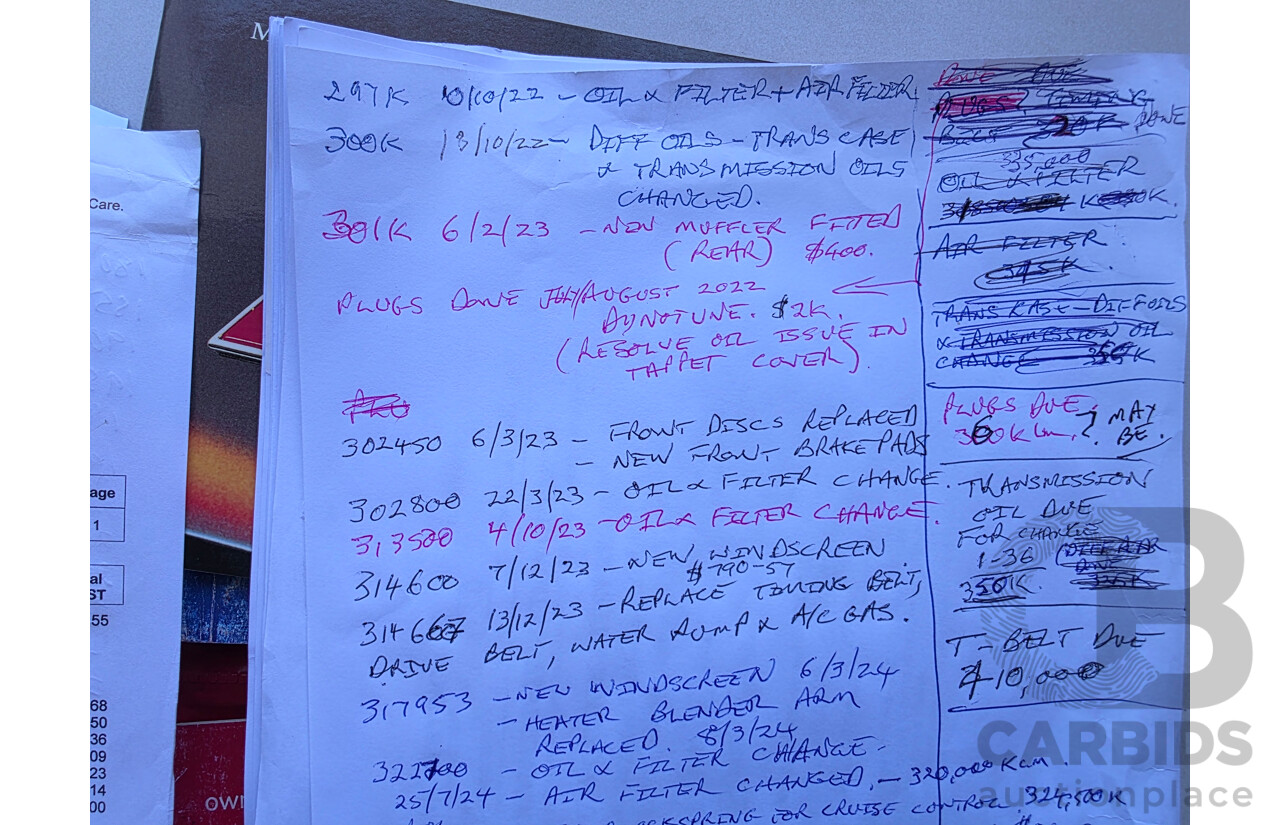 M
Care.
age
1
al
ST
55
68
50
36
09
23
14
00
OWN
297K 10/10/22 - OIL & FILTER + AIR FILTER
300K 13/10/22 - DIFF OILS - TRANS CASE
& TRANSMISSION OILS
CHANGED.
301K 6/2/23 - NEW MUFFLER FITTED
(REAR) $400.
PLUGS DONE JULY/AUGUST 2022
DYNOTUNE. $2K.
(RESOLVE OIL ISSUE IN
TAPPET COVER).
302450 6/3/23 - FRONT DISCS REPLACED
- NEW FRONT BRAKE PADS
302800 22/3/23 - OIL & FILTER CHANGE.
313500 4/10/23 - OIL & FILTER CHANGE.
314600 7/12/23 - NEW WINDSCREEN
$790-57
314667 13/12/23 - REPLACE TIMING BELT,
DRIVE BELT, WATER PUMP & A/C GAS.
317953 - NEW WINDSCREEN 6/3/24
- HEATER BLENDER ARM
REPLACED. 8/3/24
322700 - OIL & FILTER CHANGE -
25/7/24 - AIR FILTER CHANGED, - 320,000 Km.
SPRING FOR CRUISE CONTROL. 324,500K
PLUGS TIMING
BELT DONE
335,000
OIL & FILTER
AIR FILTER
345K.
TRANS CASE - DIFF OILS
& TRANSMISSION OIL
CHANGE K
PLUGS DUE
360K Km. ? MAY
BE.
TRANSMISSION
OIL DUE
FOR CHANGE
1-36
350K.
T-BELT DUE
410,000
CARBIDS
auctionplace